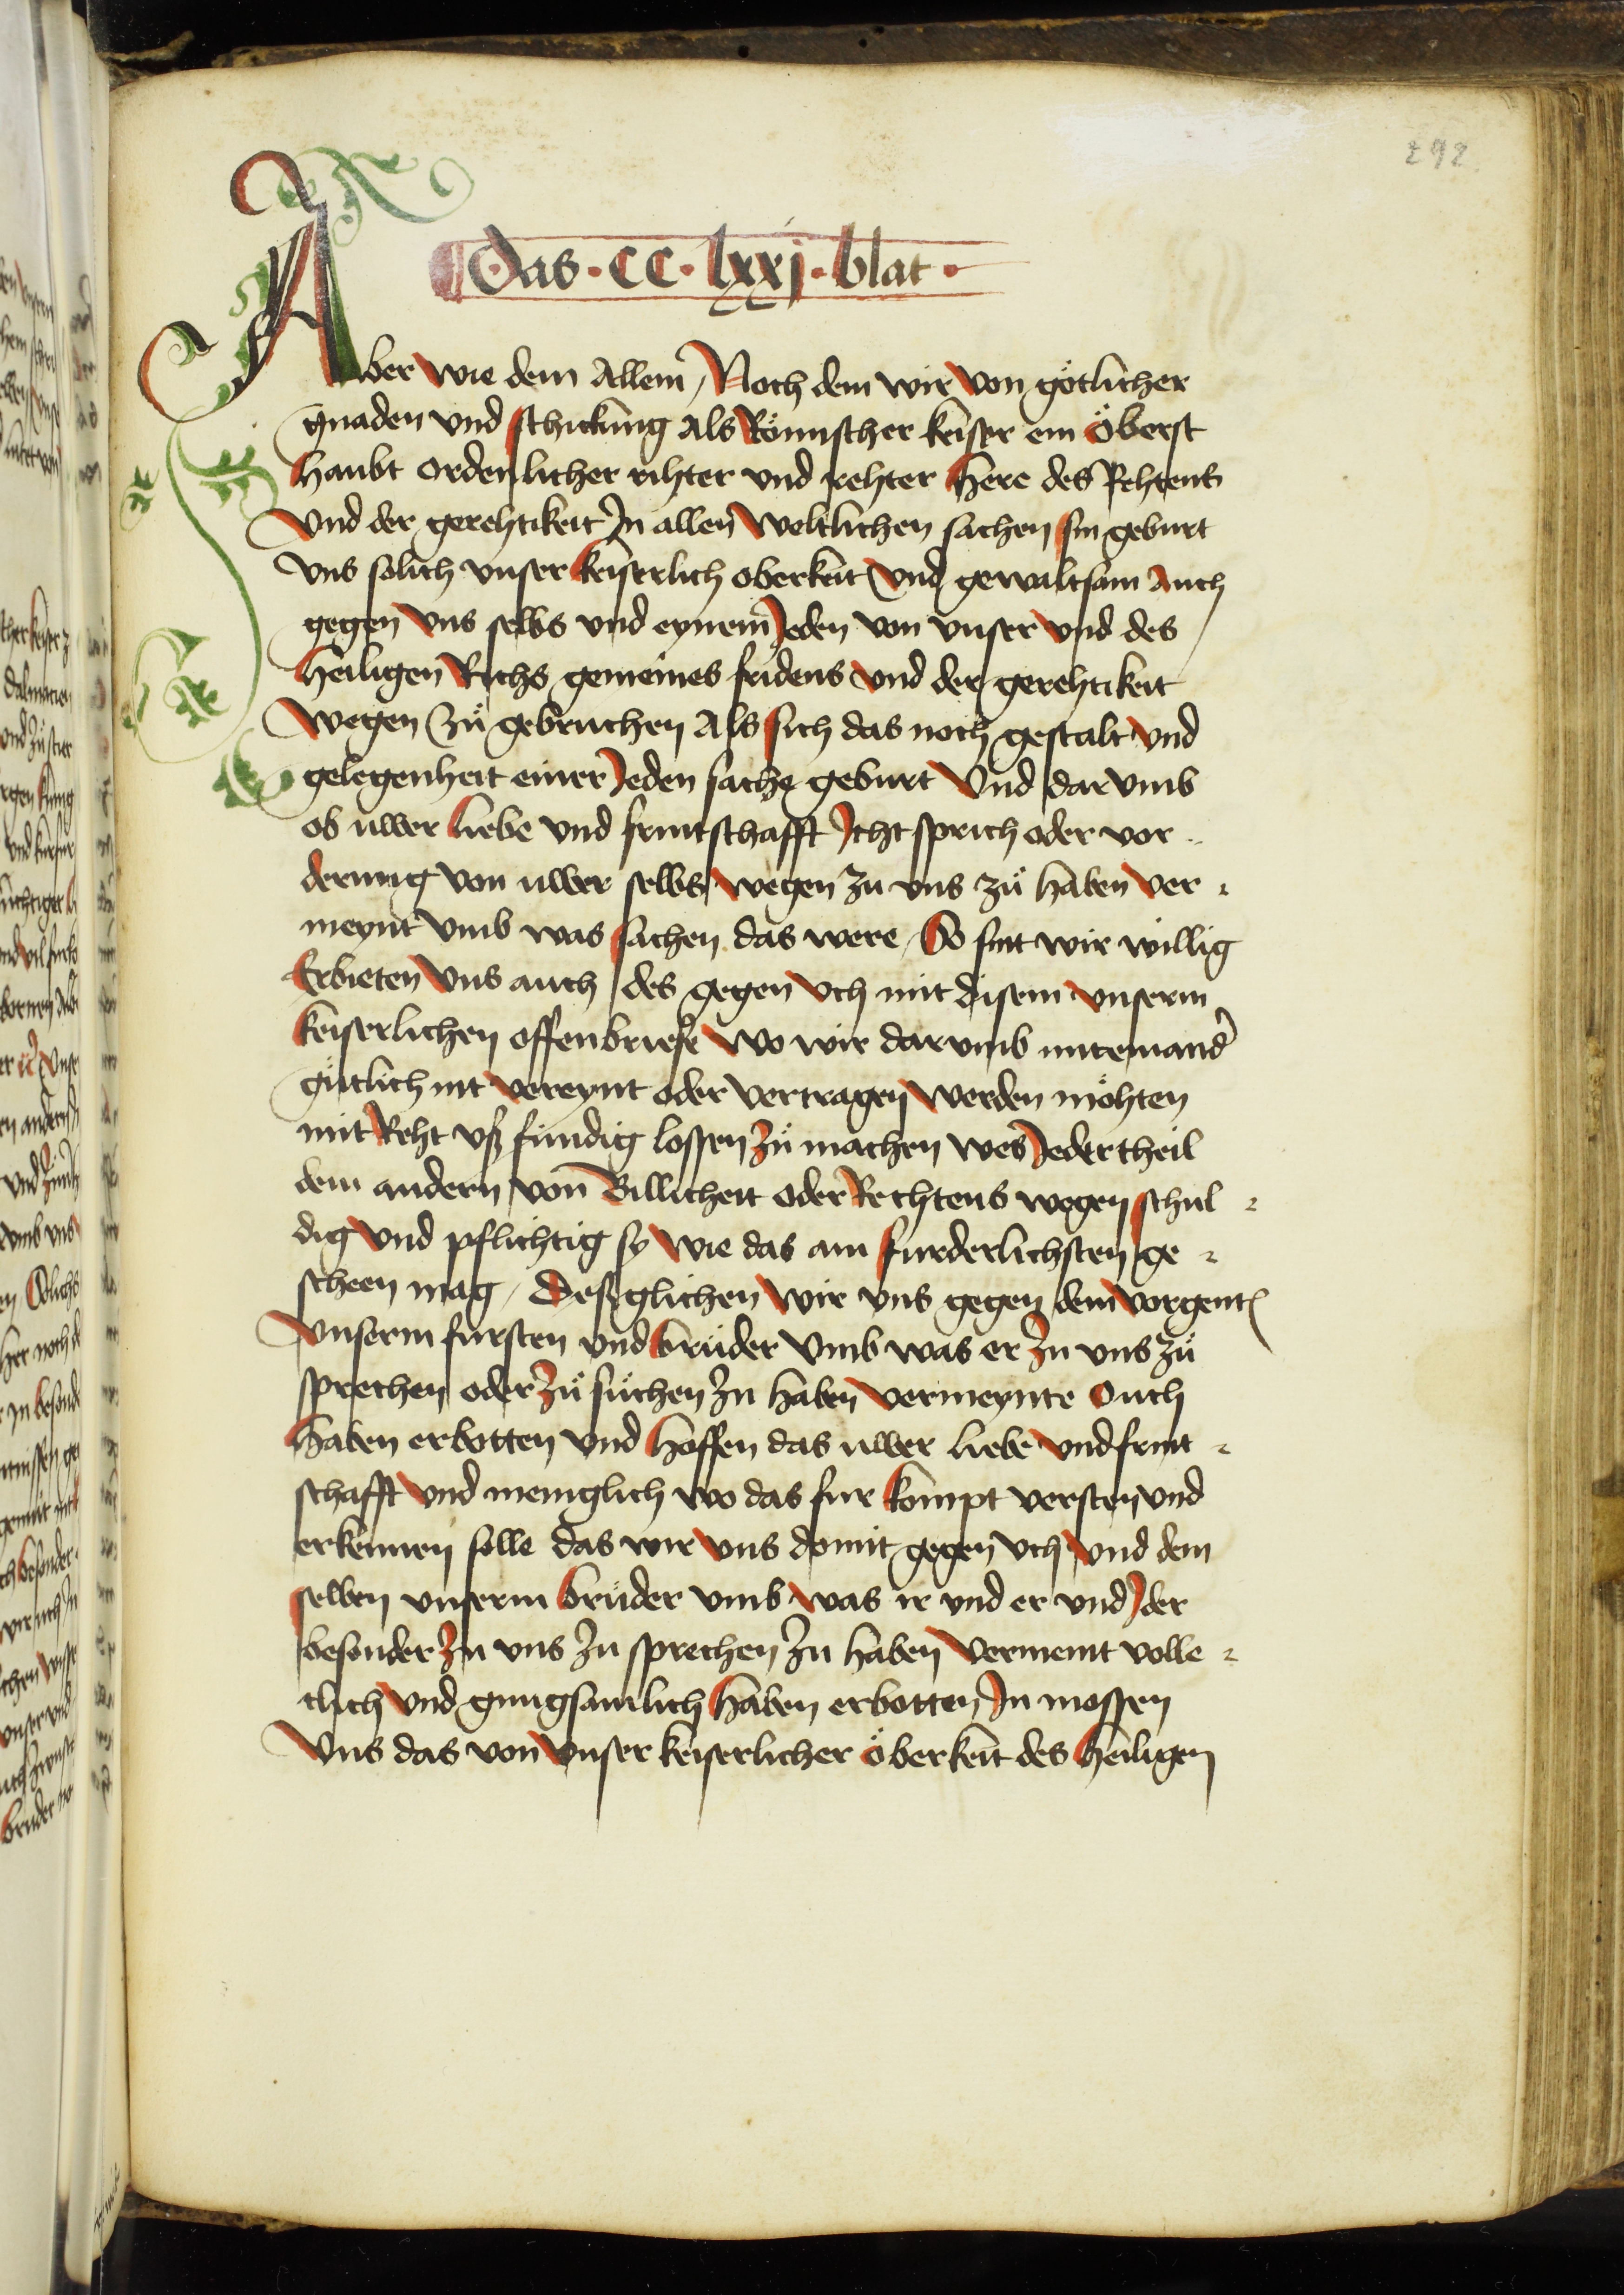 292
Das · CC · lxxj · blat ·
Aber wie dem Allem / Noch dem wir von götlicher
gnaden vnd schickung Als Römischer keiser ein öberst
haubt ordenlicher rihter vnd rehter Here des Rehtens
Vnd der gerehtikeit Jn allen weltlichen sachen sin geburt
vns solich vnser keiserlich oberkeit vnd gewaltsam Auch
gegen vns selbs vnd eynem Jeden von vnser vnd des
Heiligen Richs gemeines fridens vnd der gerehtikeit
wegen zü gebruchen Als sich das noch gestalt vnd
gelegenheit einer Jeden sache geburt Vnd dar vmb
ob uwer liebe vnd fruntschafft Jcht sprich oder vor -
derung von uwer selbs wegen zu vns zü haben ver -
meynt vmb was sachen das were / So sint wir willig
Erbieten vns auch des gegen vch mit disem vnserm
keiserlichen offenbriefe wo wir darvmb mitemand
gütlich nit vereynt oder vertragen werden möhten
mit Reht vß fündig lossen zü machen wes Jeder theil
dem andern von Billicheit oder Rechtens wegen schul -
dig vnd pflichtig sy wie das am furderlichsten ge -
scheen mag / Desglichen wir vns gegen dem vorgent
vnserm fursten vnd brüder vmb was er zu vns zü
sprechen oder zü süchen zu haben vermeynte Ouch
haben erbotten vnd hoffen das uwer liebe vnd frunt -
schafft vnd meniglich wo das fur kompt versten vnd
erkennen solle das wir vns domit gegen vch vnd dem
selben vnserm brüder vmb was ir vnd er vnd Jder
besonder zu vns zu sprechen zu haben vermeint volle -
clich vnd gnugsamlich haben erbotten Jn mossen
Vns das von vnser keiserlicher öberkeit des heiligen